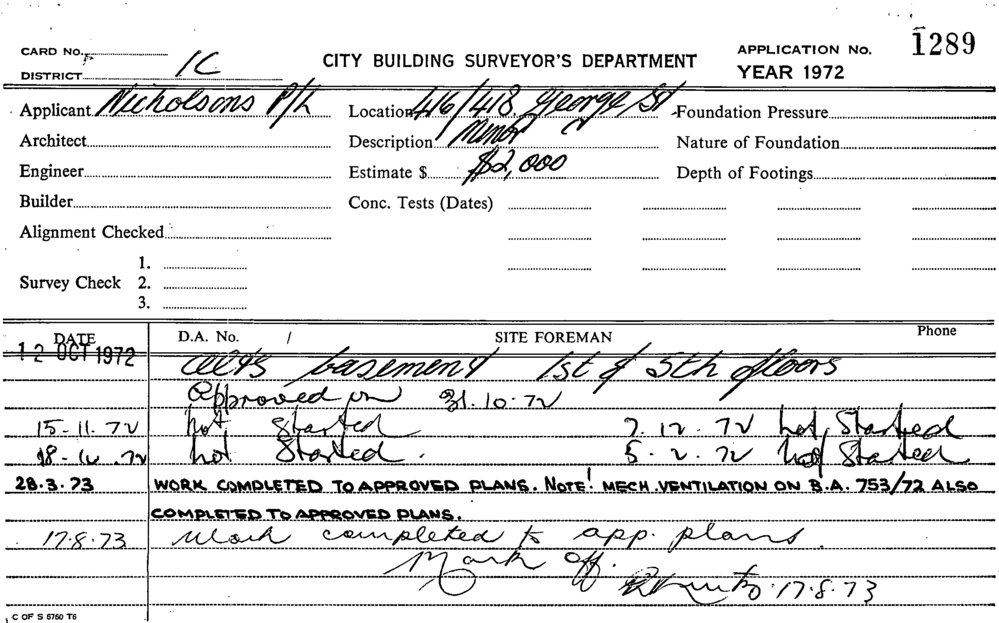 CARD No. CITY BUILDING SURVEYOR'S DEPARTMENT APPLICATION No. 1289
DISTRICT 1C YEAR 1972
Applicant Nicholsons P/L Location 416/418 George St Foundation Pressure
Architect Description Minor Nature of Foundation
Engineer Estimate $ $2,000 Depth of Footings
Builder Conc. Tests (Dates)
Alignment Checked
1.
Survey Check 2.
3.
DATE D.A. No. / SITE FOREMAN Phone
12 OCT 1972 basement 1st & 5th floors
Approved on 31.10.72
15-11.72 not Started 7.12.72 not Started
not Started. 5.2.72 not Started
28.3.73 WORK COMPLETED TO APPROVED PLANS. NOTE! MECH.VENTILATION ON B.A. 753/72 ALSO
COMPLETED TO APPROVED PLANS.
17.8.73 Work completed to app. plans.
Mark off.
17.8.73
C OF S 5760 T6